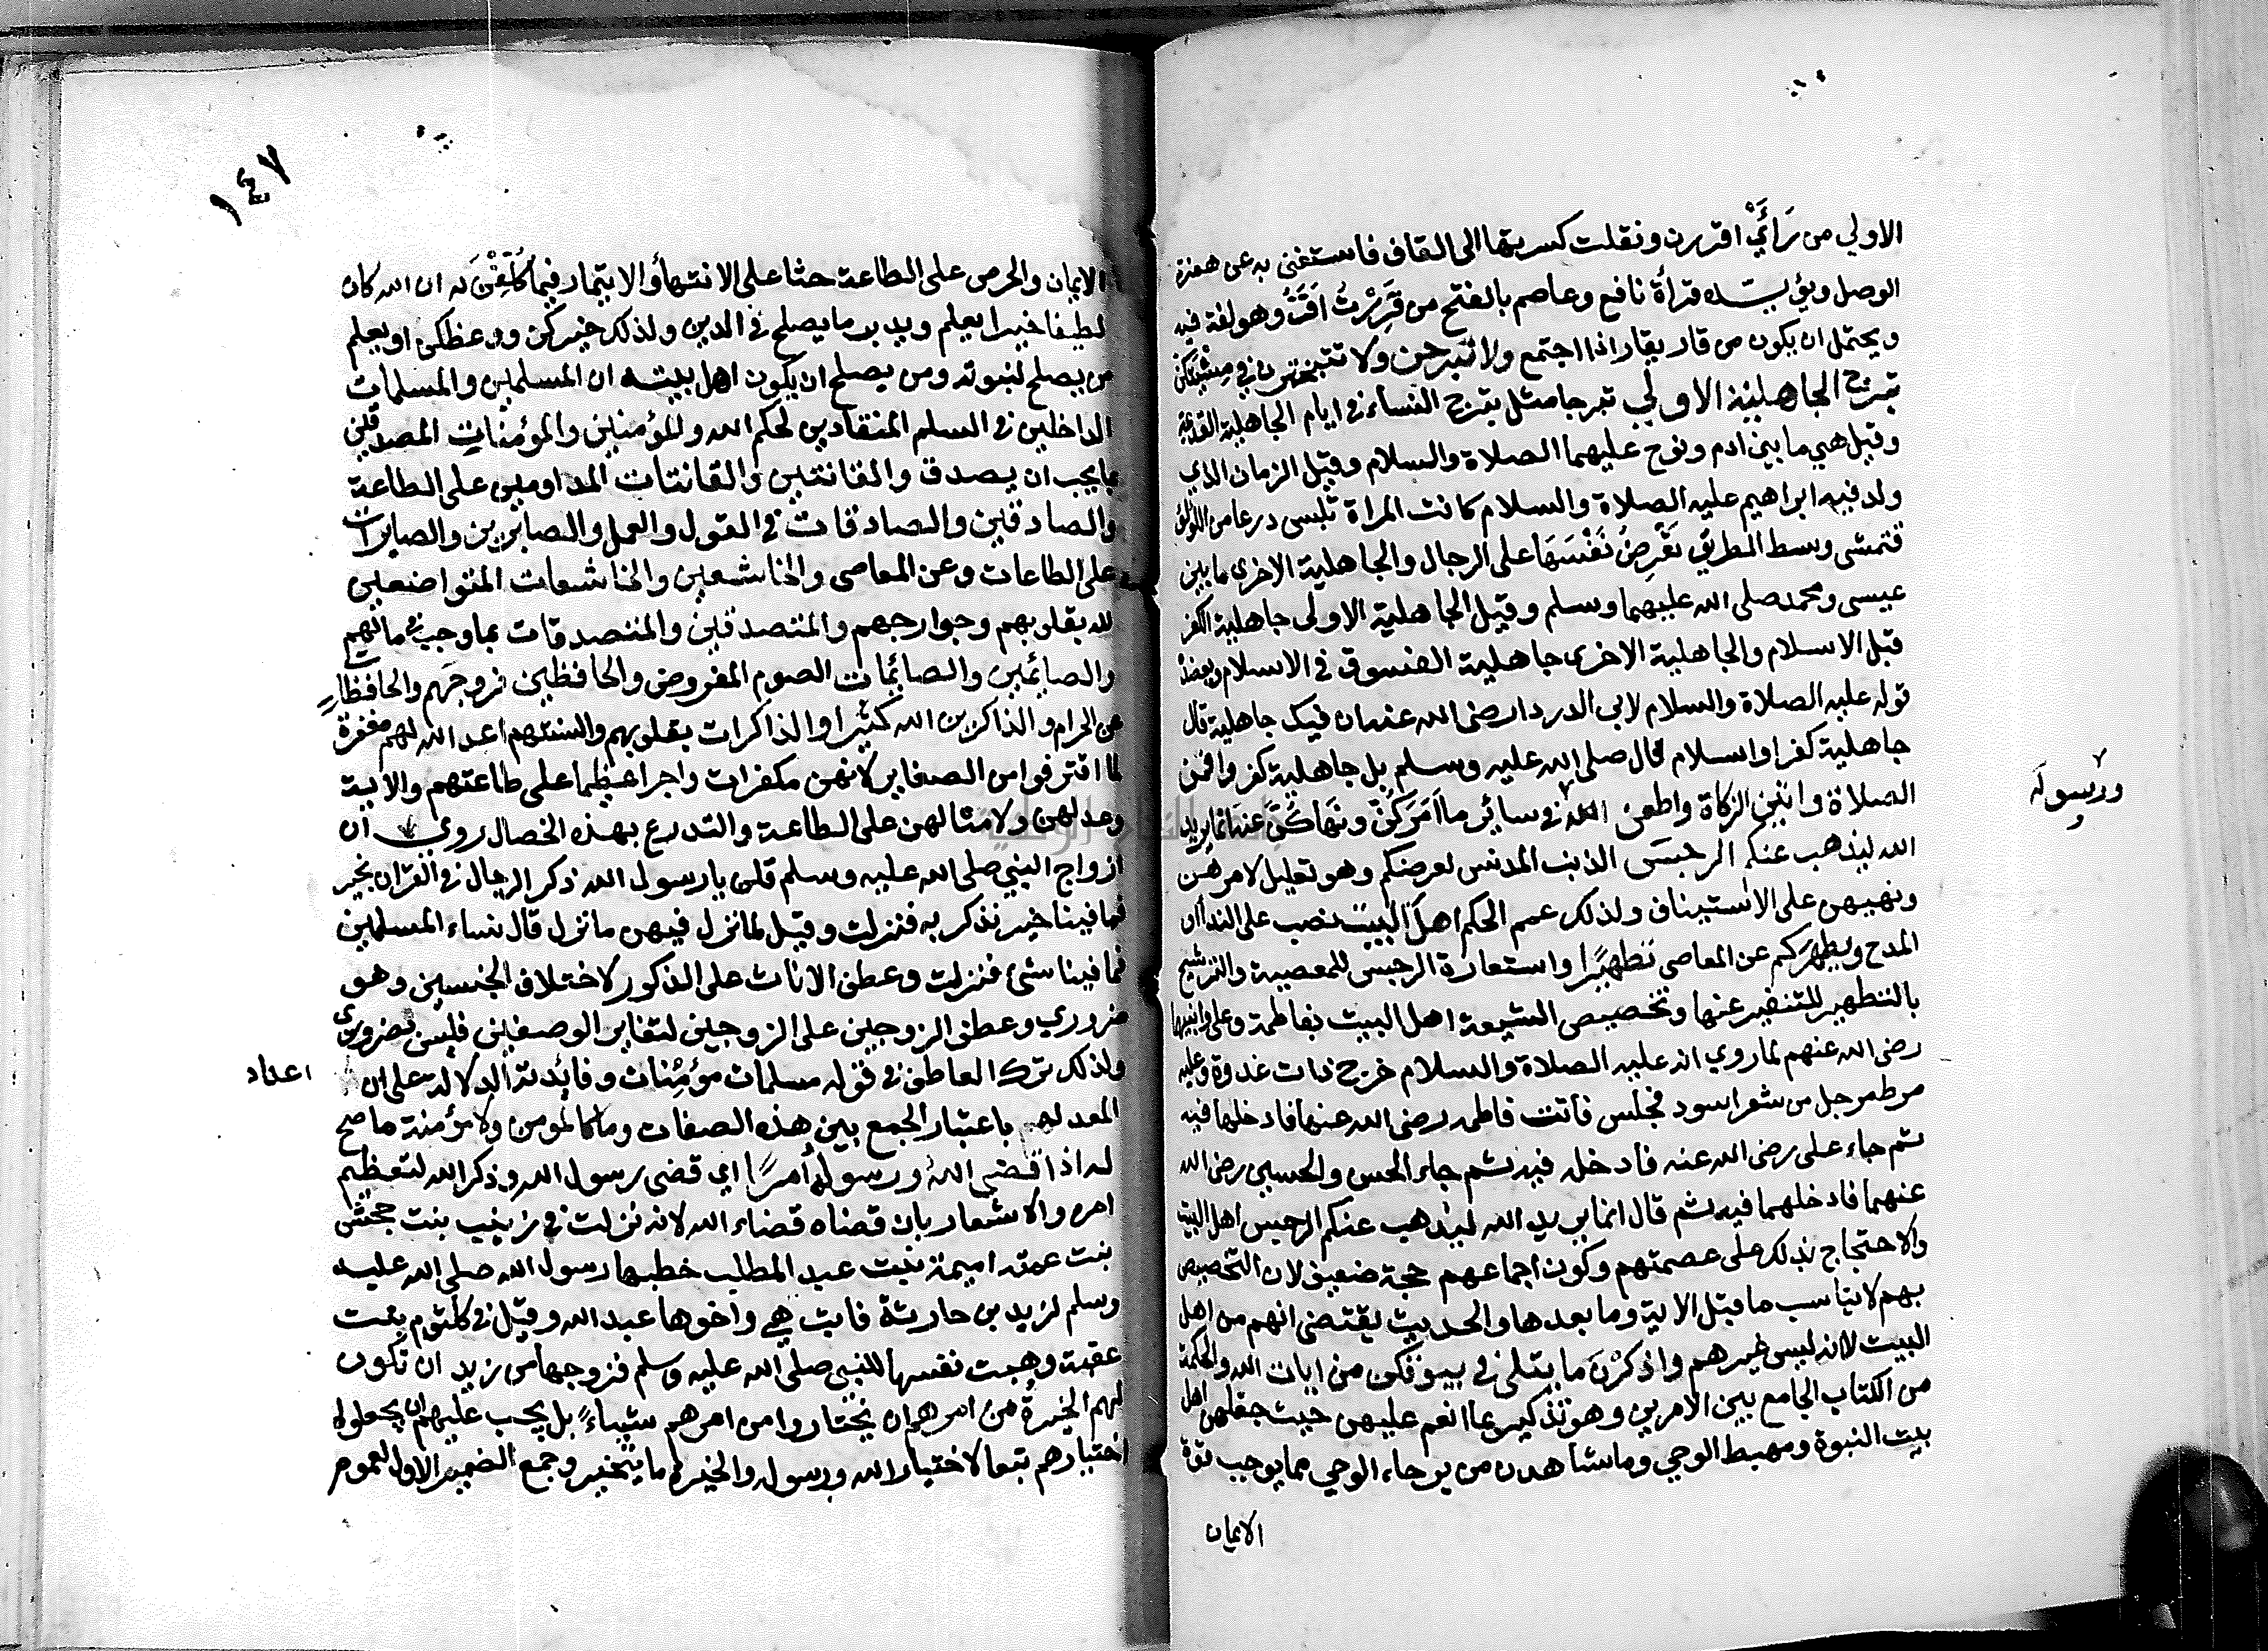 الاولي من رَائَيْ اقررن ونقلت كسرتها الى القاف فاستغنى به عن همزة
الوصل ويؤيده قرأة نافع وعاصم بالفتح من قَرِرْتُ اَقَرُّ وهو لغة فيه
ويحتمل ان يكون من قار يقار اذا اجتمع ولا تبرجن ولا تتبخترن في مشيتكن
تبرج الجاهلية الاولي تبرجا مثل تبرج النساء في ايام الجاهلية القديمة
وقيل هي ما بين ادم ونوح عليهما الصلاة والسلام وقيل الزمان الذي
ولد فيه ابراهيم عليه الصلاة والسلام كانت المراة تلبس درعا من اللؤلؤ
فتمشى وسط الطريق تَعْرِضُ نَفْسَهَا على الرجال والجاهلية الاخرى ما بين
عيسى ومحمد صلى الله عليهما وسلم وقيل الجاهلية الاولى جاهلية الكفر
قبل الاسلام والجاهلية الاخرى جاهلية الفسوق في الاسلام ويعضده
قوله عليه الصلاة والسلام لابي الدردا رضى الله عنه ان فيك جاهلية قال
جاهلية كفر او اسلام قال صلى الله عليه وسلم بل جاهلية كفر واقمن
الصلاة واتين الزكاة واطعن الله في سائر ما اَمَرَكُنَّ ونَهَاكُنَّ عنه انما يريد
ورسوله
الله ليذهب عنكم الرجسَ الذنب المدنس لعرضكم وهو تعليل لامرهن
ونهيهن على الاستيناف ولذلك عمم الحكم اهلَ البيت نصب على النداء او
المدح ويطهركم عن المعاصي تطهيرًا واستعارة الرجس للمعصية والترشيح
بالتطهير للتنفير عنها وتخصيص الشيعة اهل البيت بفاطمة وعلي وابنيهما
رضى الله عنهم لما روي انه عليه الصلاة والسلام خرج ذات غدوة وعليه
مرط مرجل من شعر اسود فجلس فاتت فاطمه رضى الله عنها فادخلها فيه
ثم جاء على رضى الله عنه فادخله فيه ثم جاء الحسن والحسين رضى الله
عنهما فادخلهما فيه ثم قال انما يريد الله ليذهب عنكم الرجس اهل البيت
والاحتجاج بذلك على عصمتهم وكون اجماعهم حجة ضعيف لان التخصيص
بهم لا يناسب ما قبل الاية وما بعدها والحديث يقتضى انهم من اهل
البيت لا انه ليس غيرهم واذكرْنَ ما يتلى في بيوتكن من ايات الله والحكمة
من الكتاب الجامع بين الامرين وهو تذكير بما انعم عليهن حيث جعلهن اهل
بيت النبوة ومهبط الوحي وما شاهدن من برحاء الوحي مما يوجب قوة
الايمان
١٤٧
الايمان والحرص على الطاعة حثا على الانتهأ والايتمار فيما كُلِّفْنَ به ان الله كان
لطيفا خبيرا يعلم ويدبر ما يصلح في الدين ولذلك خيركن ووعظكن او يعلم
من يصلح لنبوته ومن يصلح ان يكون اهل بيته ان المسلمين والمسلمات
الداخلين في السلم المنقادين لحكم الله والمؤمنين والمؤمنات المصدقين
بما يجب ان يصدق والقانتين والقانتات المداومين على الطاعة
والصادقين والصادقات في القول والعمل والصابرين والصابرات
على الطاعات وعن المعاصى والخاشعين والخاشعات المتواضعين
لله بقلوبهم وجوارحهم والمتصدقين والمتصدقات بما وجب في مالهم
والصائمين والصائمات الصوم المفروض والحافظين فروجهم والحافظات
عن الحرام والذاكرين الله كثيرا والذاكرات بقلوبهم والسنتهم اعد الله لهم مغفرة
لما اقترفوا من الصغاير لانهن مكفرات واجرا عظيما على طاعتهم والاية
وعد لهن ولامثالهن على الطاعة والتدرع بهذه الخصال روي ان
ازواج النبي صلى الله عليه وسلم قلن يا رسول الله ذكر الرجال في القران بخير
فما فينا خير نذكر به فنزلت وقيل لما نزل فيهن ما نزل قال نساء المسلمين
فما فينا شئ فنزلت وعطف الاناث على الذكور لاختلاف الجنسين وهو
ضروري وعطف الزوجين على الزوجين لتغاير الوصفين فليس بضروري
ولذلك ترك العاطف في قوله مسلمات مؤمنات وفائدته الدلالة على ان
اعداد
المعد لهم باعتبار الجمع بين هذه الصفات وما كا لمومن ولا مؤمنة ما صح
له اذا قضى اللهُ ورسولهُ أمرًا اي قضى رسول الله وذكر الله لتعظيم
امره والاشعار بان قضاه قضاء الله لانه نزلت في زينب بنت جحش
بنت عمته اميمة بنت عبد المطلب خطبها رسول الله صلى الله عليه
وسلم لزيد بن حارثة فابت هي واخوها عبد الله وقيل في كلثوم بنت
عقبة وهبت نفسها للنبي صلى الله عليه وسلم فزوجها من زيد ان تكون
لهم الخيرةُ من امرهم ان يختاروا من امرهم شيئاً بل يجب عليهم ان يجعلوا
اختيارهم تبعا لاختيار الله ورسوله والخيرة ما يتخير وجمع الضمير الاول لعموم